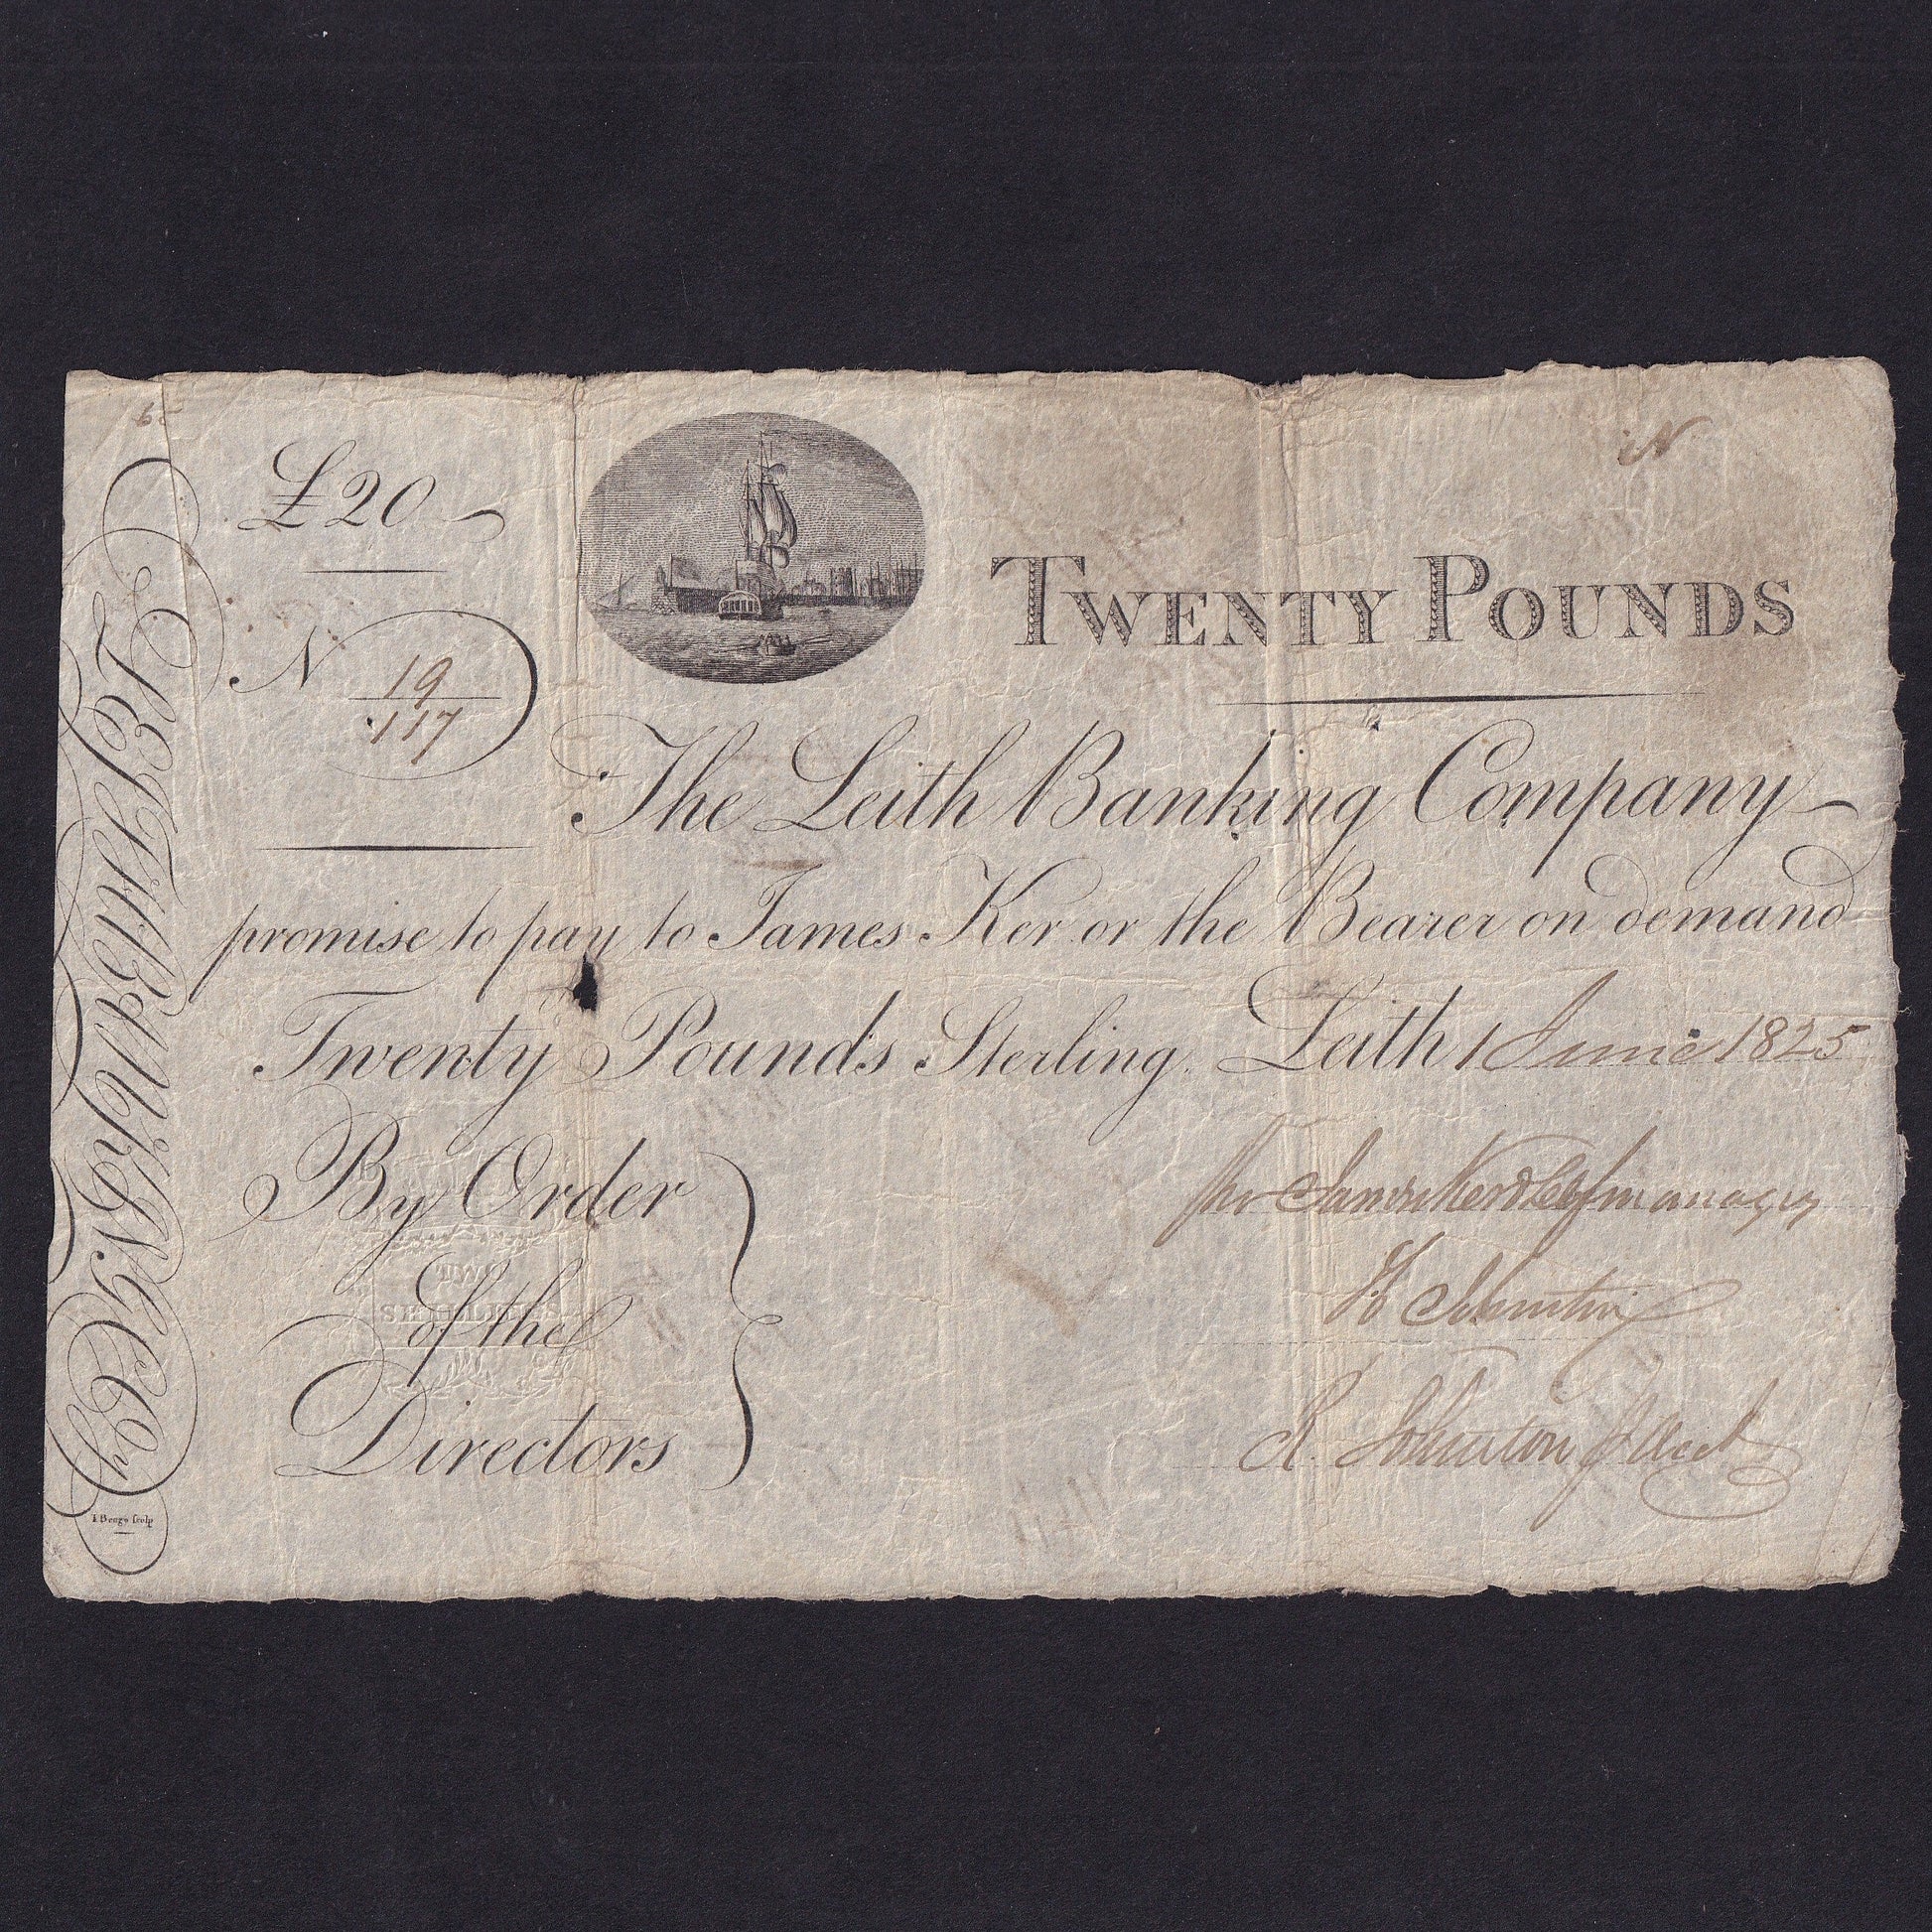 £20
N
N 19/117
TWENTY POUNDS
The Leith Banking Company
promise to pay to James Ker or the Bearer on demand
Twenty Pounds Sterling. Leith 1 June 1825
By Order
of the
Directors
TWO
SHILLINGS
James Ker manager
H Johnston
R. Johnston
LEITH BANKING Co
I Beugo sculp